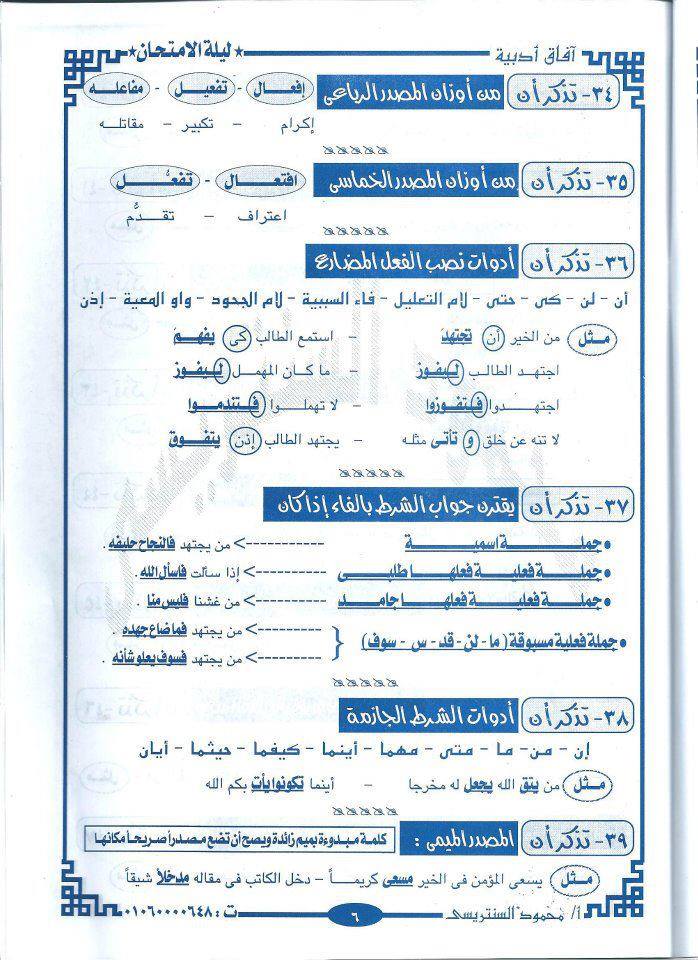 آفاق أدبية ★ليلة الامتحان★
٣٤- تذكر أن من أوزان المصدر الرباعى إفعال - تفعيل - مفاعله
إكرام – تكبير – مقاتله
٣٥- تذكر أن من أوزان المصدر الخماسى افتعال - تفعُّل
اعتراف – تقدُّم
٣٦- تذكر أن أدوات نصب الفعل المضارع
أن – لن – كى – حتى – لام التعليل – فاء السببية – لام الجحود – واو المعية – إذن
مثل من الخير أن تجتهد – استمع الطالب كى يفهم
اجتهد الطالب ليفوز – ما كان المهمل ليفوز
اجتهدوا فتفوزوا – لا تهملوا فتندموا
لا تنه عن خلق و تأتى مثله – يجتهد الطالب إذن يتفوق
٣٧- تذكر أن يقترن جواب الشرط بالفاء إذا كان
• جملة اسمية ----------> من يجتهد فالنجاح حليفه .
• جملة فعلية فعلها طلبى ----------> إذا سألت فاسأل الله .
• جملة فعلية فعلها جامد ----------> من غشنا فليس منا .
• جملة فعلية مسبوقة ( ما - لن - قد - س - سوف) } ----------> من يجتهد فما ضاع جهده .
----------> من يجتهد فسوف يعلو شأنه .
٣٨- تذكر أن أدوات الشرط الجازمة
إن – من – ما – متى – مهما – أينما – كيفما – حيثما – أيان
مثل من يتق الله يجعل له مخرجا – أينما تكونوا يأت بكم الله
٣٩- تذكر أن المصدر الميمى : كلمة مبدوءة بميم زائدة ويصح أن تضع مصدراً صريحاً مكانها
مثل يسعى المؤمن فى الخير مسعى كريماً – دخل الكاتب فى مقاله مدخلاً شيقاً
أ/ محمود السنتريسى ٦ ت : ٠١٠٦٠٠٠٠٦٤٨